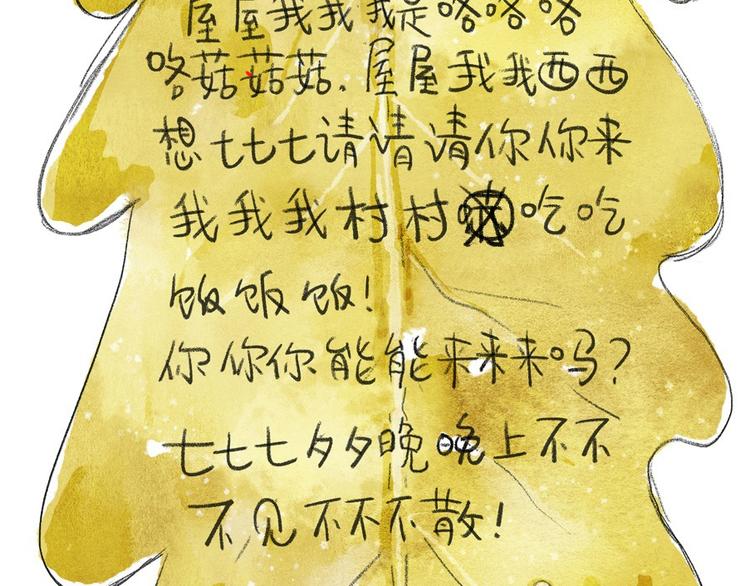 屋屋我我我是咯咯咯
咯菇菇菇.屋屋我我西西
想七七七请请请你你来
我我我村村吃吃
饭饭饭!
你你你能能来来来吗?
七七七夕夕晚晚上不不
不见不不不散!